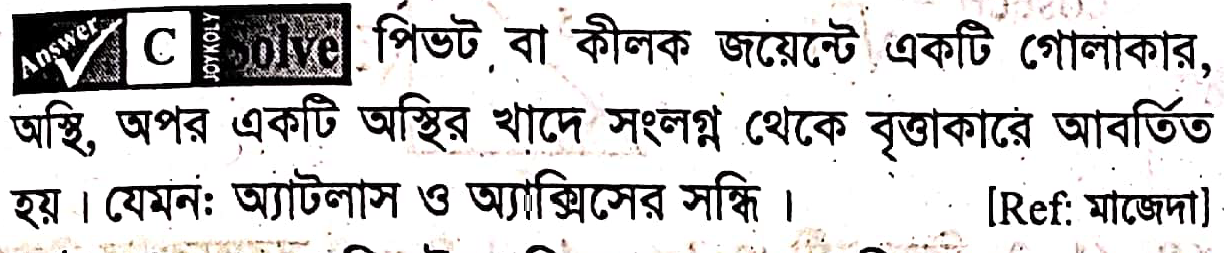 Answer C JOYKOLY Solve পিভট বা কীলক জয়েন্টে একটি গোলাকার,
অস্থি, অপর একটি অস্থির খাদে সংলগ্ন থেকে বৃত্তাকারে আবর্তিত
হয়। যেমন: অ্যাটলাস ও অ্যাক্সিসের সন্ধি। [Ref: মাজেদা]